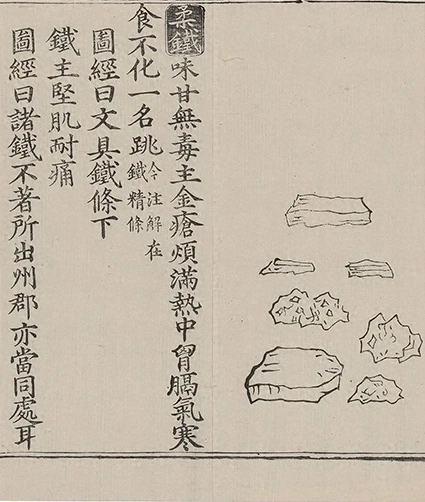 柔鐵味甘無毒主金瘡煩滿熱中胷膈氣寒
食不化一名跳
今注解在
鐵精條
圖經曰文具鐵條下
鐵主堅肌耐痛
圖經曰諸鐵不著所出州郡亦當同處耳